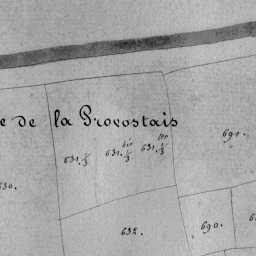 e de la Provostais
631.1/3 631.bis1/3 631.ter1/3
690.
630.
632.
690.